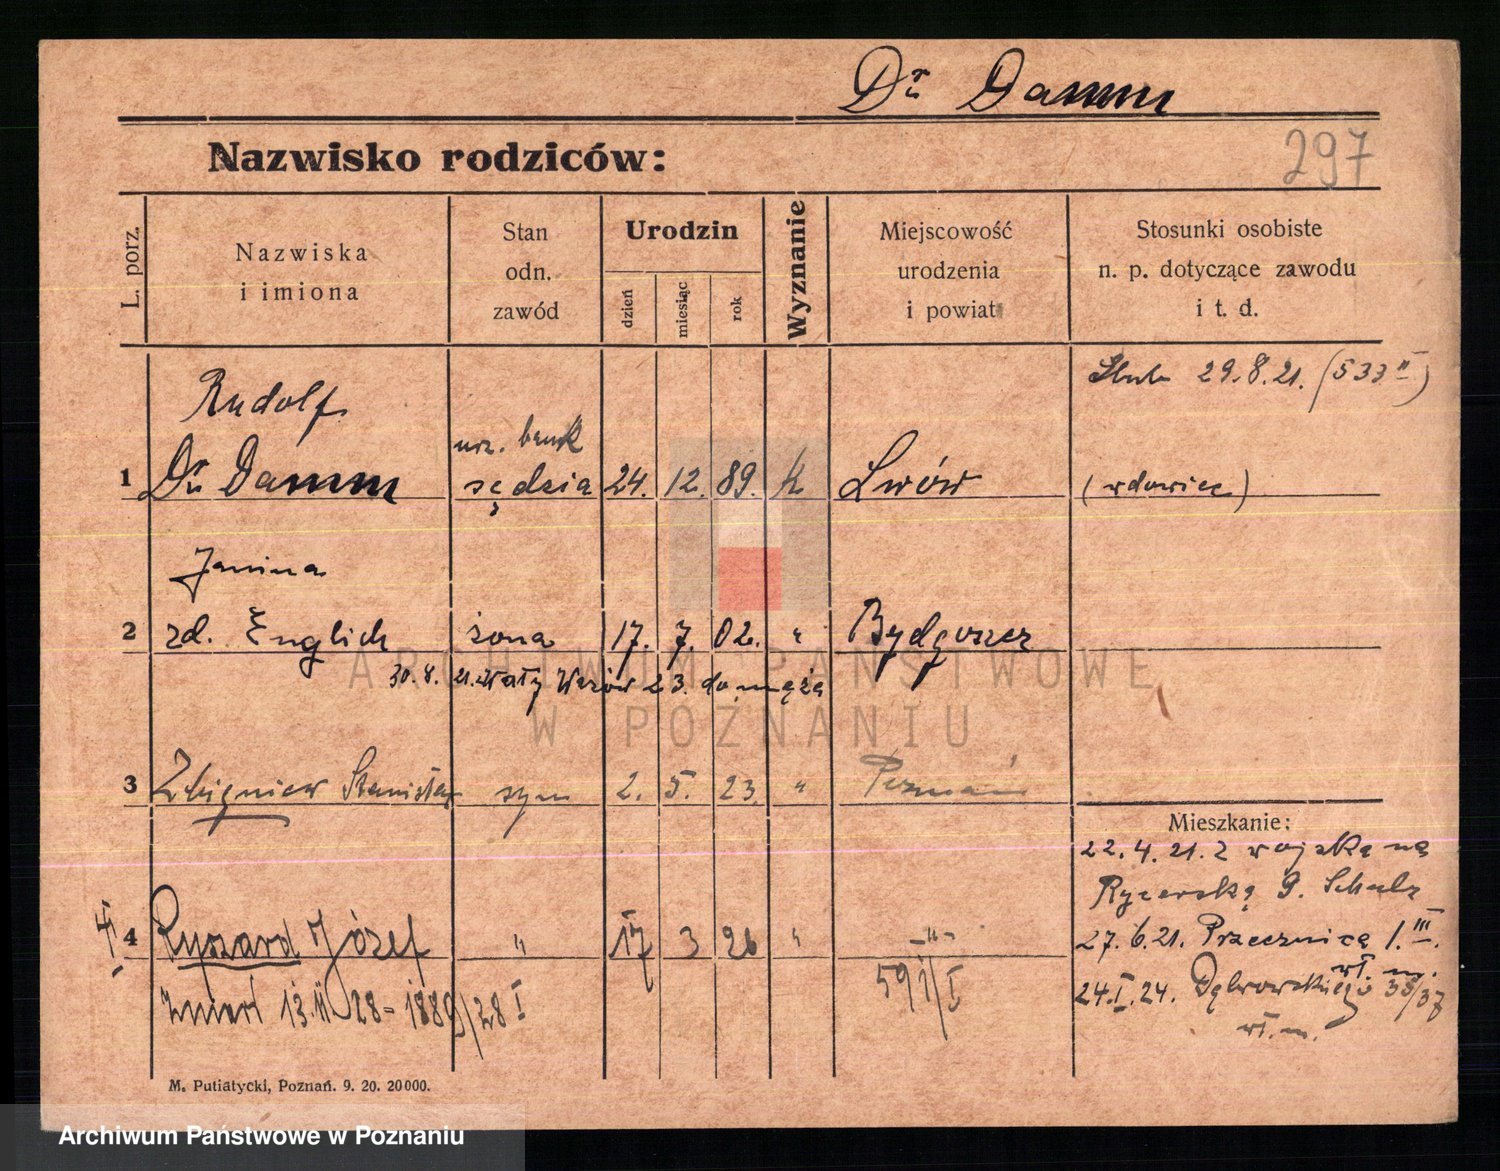 Dr Damm
Nazwisko rodziców:
297
L. porz.
Nazwiska
i imiona
Stan
odn.
zawód
Urodzin
dzień
miesiąc
rok
Wyznanie
Miejscowość
urodzenia
i powiat
Stosunki osobiste
n. p. dotyczące zawodu
i t. d.
Ślub 29.8.21. (533 II)
Rudolf
urz. bank
1 Dr Damm sędzia 24. 12. 89. k Lwów (wdowiec)
Janina
2 zd. Englich żona 17. 7. 02. " Bydgoszcz
30.8.21. 23. do męża
ARCHIWUM PAŃSTWOWE
W POZNANIU
3 Zbigniew Stanisław syn 2. 5. 23. " Poznań
Mieszkanie:
22.4.21. z wojska na
Rycerską 9. Schulz
4 Ryszard Józef " 17 3 26 " -"-
27.6.21. Przecznica 1. III.
wł. m.
24.I.24. Dąbrowskiego 35/37
wł. m.
Zmarł 13.II 28 - 1889/28 I
M. Putiatycki, Poznań. 9. 20. 20000.
Archiwum Państwowe w Poznaniu